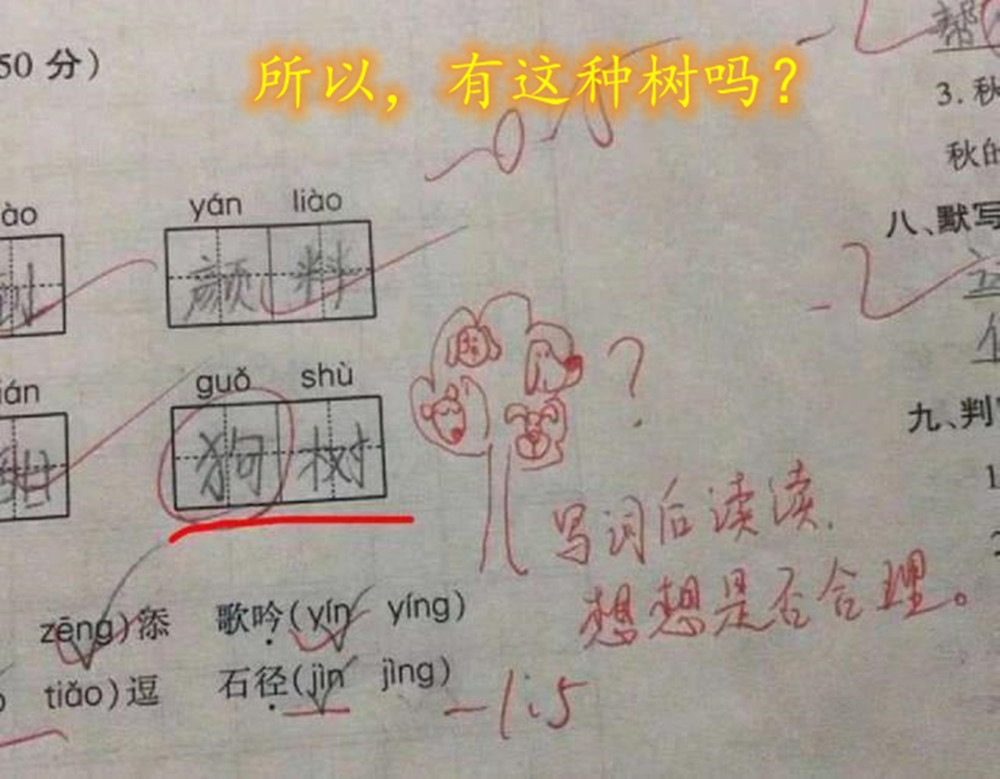 50 分）
所以，有这种树吗？
3. 秋
秋的
ào
yán liào
颜料
八、默写
ián
guǒ shù
狗树
？
九、判
写词后读读，
想想是否合理。
zēng)添 歌吟(yín yíng)
tiǎo)逗 石径(jìn jìng)
-1.5